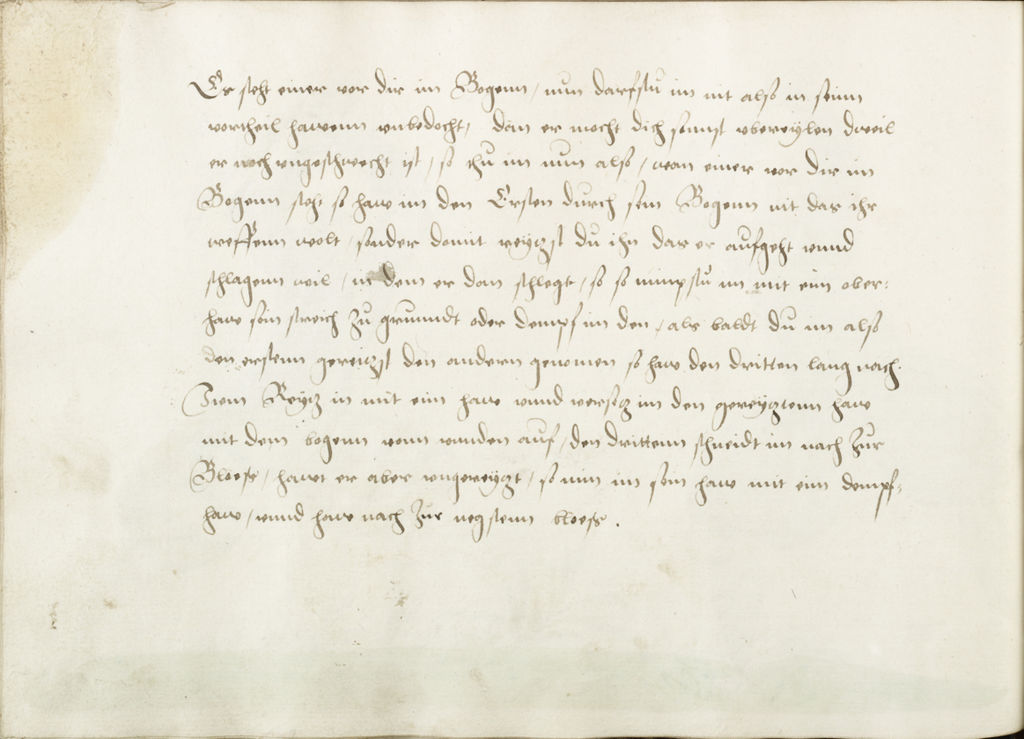 Er steht einer vor dir im Bogenn / nun darfstu im nit also in seinn
vortheil hawenn unbedocht, dan er mocht dich sonnst ubereÿlen dweil
er noch ungeschwecht ist / so thu im nun also / wan einer vor dir im
Bogenn steht so haw im den Ersten durch sein Bogenn nit das ihr
treffenn wolt / sonder domit reÿtzst du ihn das er aufgeht unnd
schlagenn wil / in dem er dan schlegt / so so nimpstu im mit eim ober=
haw sein streich zu grunndt oder dempf im den / als baldt du im also
den erstenn gereitzst den andern genomen so haw den dritten lang nach.
Item Reÿtz in mit eim haw unnd versetz im den gereÿtztenn haw
mit dem bogenn vonn unden auf / den drittenn schneidt im nach zur
Bloess / hawt er aber ungereÿtzt / so nim im sein haw mit eim dempf=
haw / unnd haw nach zur negstenn bloess .